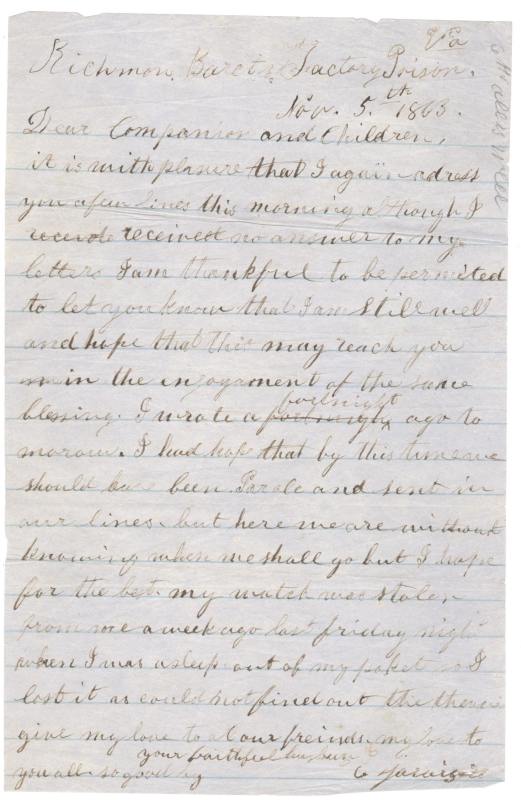 Va
Richmon Baret's Factory Prison.
Nov. 5.th 1863.
Dear Companion and Children,
it is with plasure that I again adress
you a few lines this morning although I
received no answer to my
letters I am thankful to be permited
to let you know that I am still well
and hope that this may reach you
in the injoyment of the same
blessing. I wrote a fortnight ago to
morow. I had hope that by this time we
should have been Parole and sent in
our lines. but here we are without
knowing when we shall go but I hope
for the best. my watch was stolen
from me a week ago last friday night
when I was asleep out of my poket so I
lost it as could not find out the
give my love to al our freinds my love to
your faithful
you all so good by